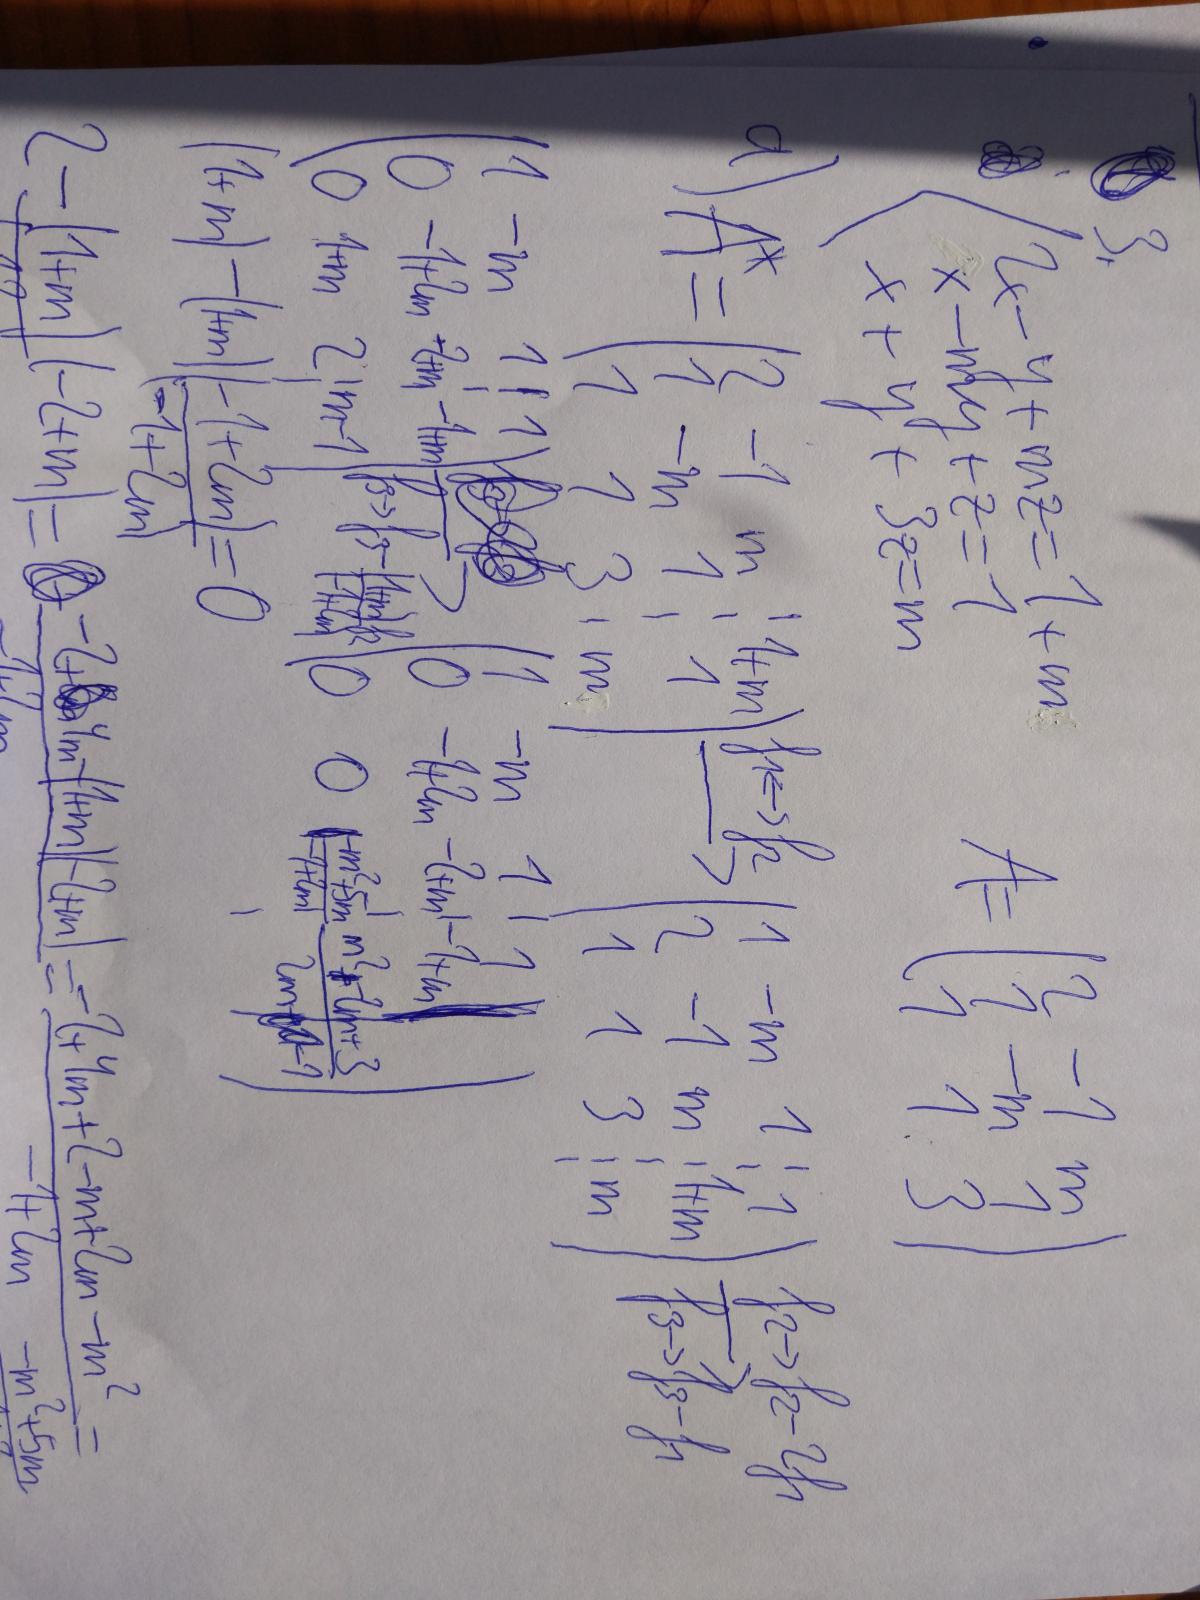 3.
2x - y + mz = 1 + m
x - my + z = 1
x + y + 3z = m
A = ( 2 -1 m
1 -m 1
1 1 3 )
a) A* = ( 2 -1 m ¦ 1+m
1 -m 1 ¦ 1
1 1 3 ¦ m ) f1<->f2 → ( 1 -m 1 ¦ 1
2 -1 m ¦ 1+m
1 1 3 ¦ m ) f2->f2-2f1
f3->f3-f1 →
( 1 -m 1 ¦ 1
0 -1+2m -2+m ¦ -1+m
0 1+m 2 ¦ m-1 ) → ( 1 -m 1 ¦ 1
0 -1+2m -2+m ¦ -1+m
0 0 -m²+5m / -1+2m ¦
(1+m) - (1+m)(-1+2m) / (-1+2m) = 0
2 - (1+m)(-2+m) = -2+4m-(1+m)(-2+m) = -2+4m+2-m+2m-m² =
-1+2m
-m²+5m